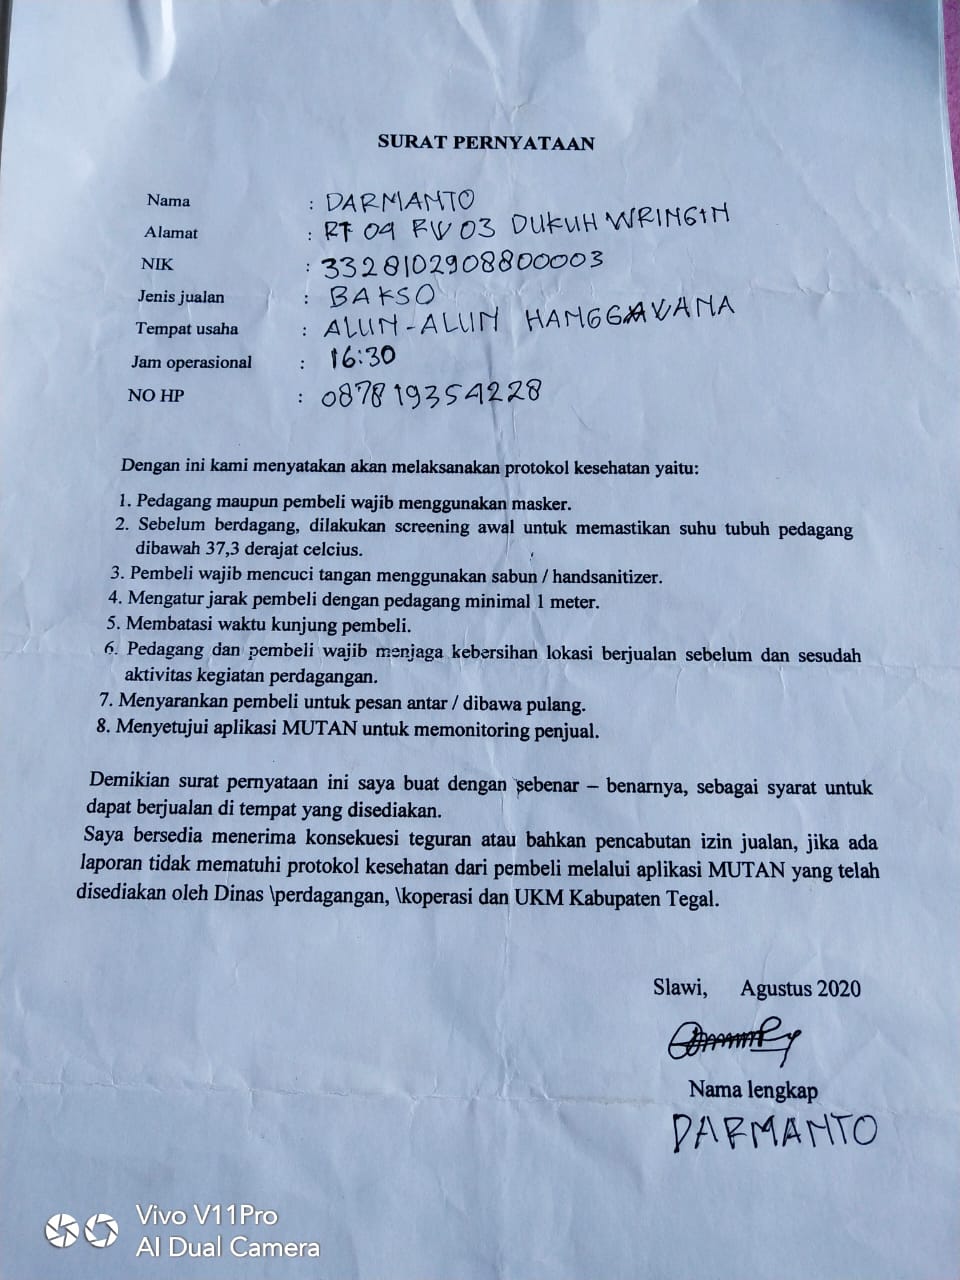 SURAT PERNYATAAN
Nama : DARMANTO
Alamat : RT 04 RW 03 DUKUH WRINGIN
NIK : 3328102908800003
Jenis jualan : BAKSO
Tempat usaha : ALUN-ALUN HANGGAWANA
Jam operasional : 16:30
NO HP : 087819354228
Dengan ini kami menyatakan akan melaksanakan protokol kesehatan yaitu:
1. Pedagang maupun pembeli wajib menggunakan masker.
2. Sebelum berdagang, dilakukan screening awal untuk memastikan suhu tubuh pedagang
dibawah 37,3 derajat celcius.
3. Pembeli wajib mencuci tangan menggunakan sabun / handsanitizer.
4. Mengatur jarak pembeli dengan pedagang minimal 1 meter.
5. Membatasi waktu kunjung pembeli.
6. Pedagang dan pembeli wajib menjaga kebersihan lokasi berjualan sebelum dan sesudah
aktivitas kegiatan perdagangan.
7. Menyarankan pembeli untuk pesan antar / dibawa pulang.
8. Menyetujui aplikasi MUTAN untuk memonitoring penjual.
Demikian surat pernyataan ini saya buat dengan sebenar – benarnya, sebagai syarat untuk
dapat berjualan di tempat yang disediakan.
Saya bersedia menerima konsekuesi teguran atau bahkan pencabutan izin jualan, jika ada
laporan tidak mematuhi protokol kesehatan dari pembeli melalui aplikasi MUTAN yang telah
disediakan oleh Dinas \perdagangan, \koperasi dan UKM Kabupaten Tegal.
Slawi, Agustus 2020
Nama lengkap
DARMANTO
Vivo V11Pro
AI Dual Camera